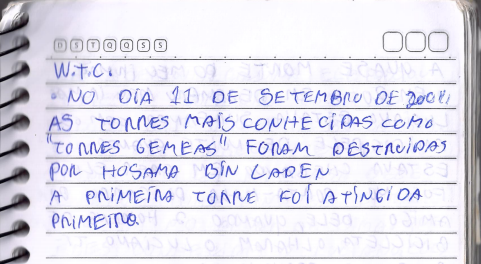 D S T Q Q S S
W.T.C.
NO DIA 11 DE SETEMBRO DE 2001,
AS TORRES MAIS CONHECIDAS COMO
"TORRES GEMEAS" FORAM DESTRUIDAS
POR HOSAMA BIN LADEN
A PRIMEIRA TORRE FOI ATINGIDA
PRIMEIRO